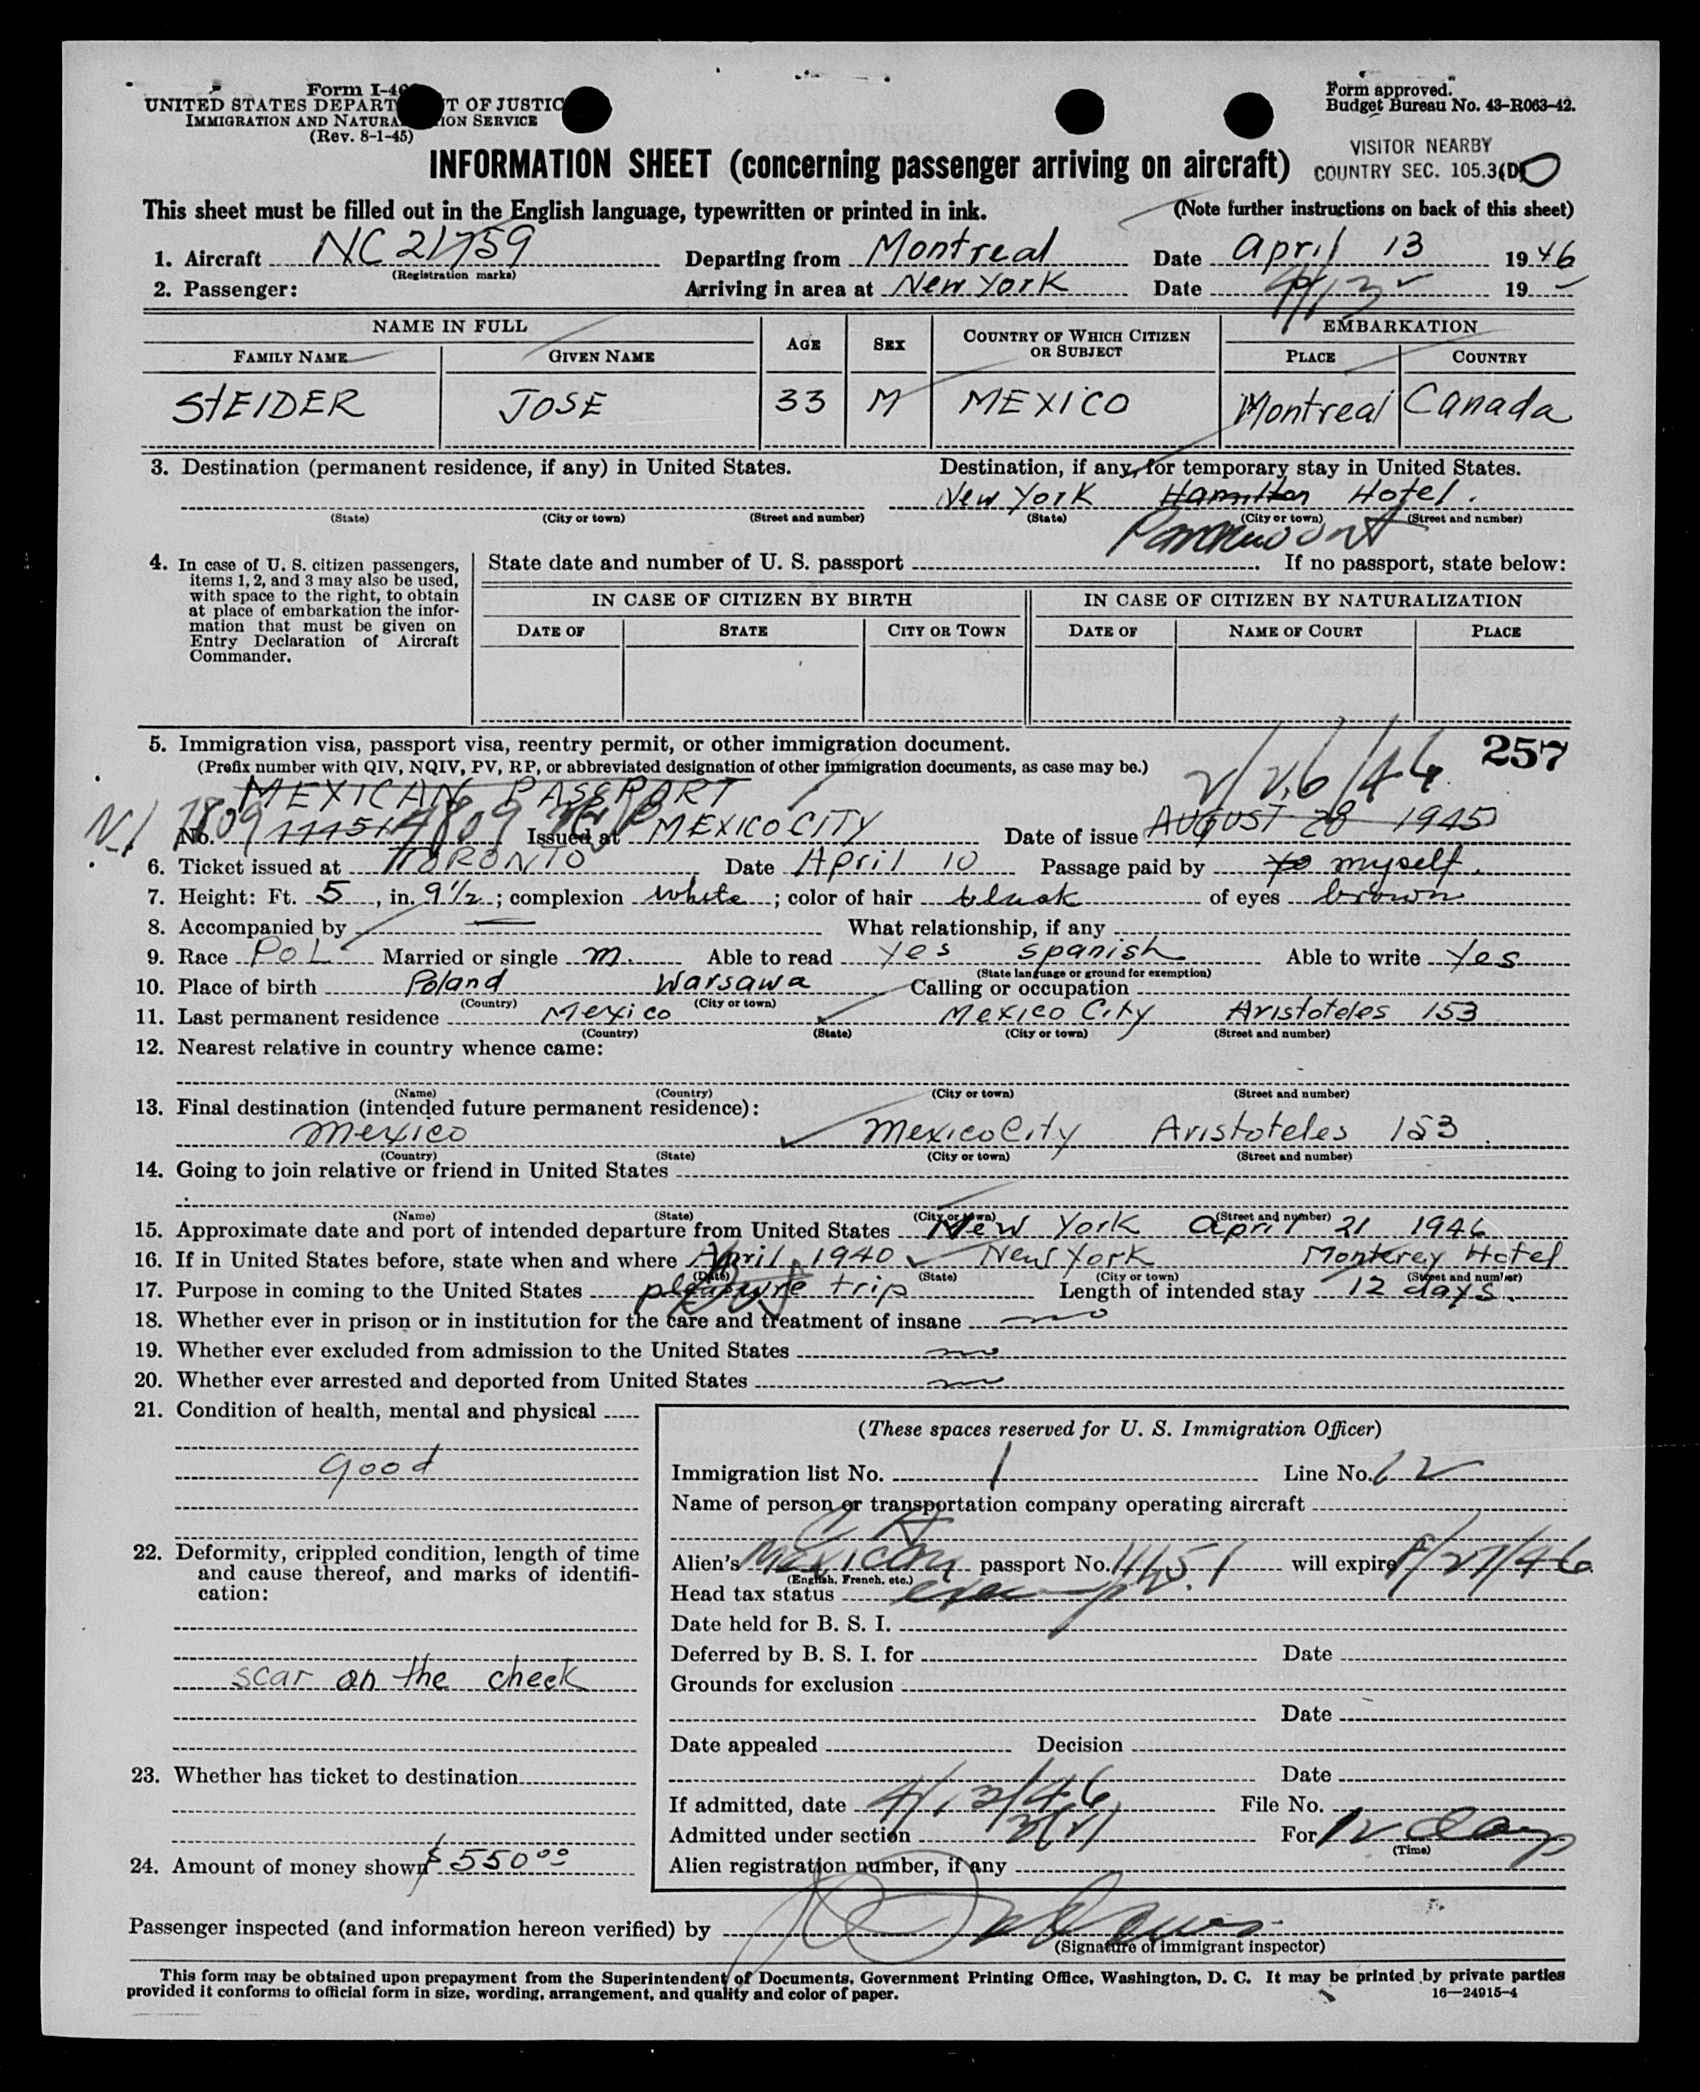 Form I-4
UNITED STATES DEPART T OF JUSTIC
IMMIGRATION AND NATURA ION SERVICE
(Rev. 8-1-45)
Form approved.
Budget Bureau No. 43-R063-42.
VISITOR NEARBY
COUNTRY SEC. 105.3(D)
INFORMATION SHEET (concerning passenger arriving on aircraft)
This sheet must be filled out in the English language, typewritten or printed in ink. (Note further instructions on back of this sheet)
1. Aircraft NC 21759 Departing from Montreal Date April 13 1946
(Registration marks)
2. Passenger: Arriving in area at New York Date 4/13 19
NAME IN FULL AGE SEX COUNTRY OF WHICH CITIZEN OR SUBJECT EMBARKATION
FAMILY NAME GIVEN NAME PLACE COUNTRY
StEIDER JOSE 33 M MEXICO Montreal Canada
3. Destination (permanent residence, if any) in United States. Destination, if any, for temporary stay in United States.
New York Hamilton Hotel.
(State) (City or town) (Street and number) (State) (City or town) (Street and number)
4. In case of U. S. citizen passengers, items 1, 2, and 3 may also be used, with space to the right, to obtain at place of embarkation the information that must be given on Entry Declaration of Aircraft Commander.
State date and number of U. S. passport If no passport, state below:
IN CASE OF CITIZEN BY BIRTH IN CASE OF CITIZEN BY NATURALIZATION
DATE OF STATE CITY OR TOWN DATE OF NAME OF COURT PLACE
257
5. Immigration visa, passport visa, reentry permit, or other immigration document.
(Prefix number with QIV, NQIV, PV, RP, or abbreviated designation of other immigration documents, as case may be.)
2/26/46
MEXICAN PASSPORT
No. 11151 Issued at MEXICO CITY Date of issue AUGUST 28 1945
6. Ticket issued at TORONTO Date April 10 Passage paid by myself.
7. Height: Ft. 5, in. 9½; complexion white; color of hair black of eyes brown
8. Accompanied by — What relationship, if any
9. Race POL Married or single M. Able to read yes spanish Able to write Yes
(State language or ground for exemption)
10. Place of birth Poland Warsawa Calling or occupation
(Country) (City or town)
11. Last permanent residence Mexico Mexico City Aristoteles 153
(Country) (State) (City or town) (Street and number)
12. Nearest relative in country whence came:
(Name) (Country) (City or town) (Street and number)
13. Final destination (intended future permanent residence):
Mexico Mexico City Aristoteles 153
(Country) (State) (City or town) (Street and number)
14. Going to join relative or friend in United States
(Name) (State) (City or town) (Street and number)
15. Approximate date and port of intended departure from United States New York April 21 1946
16. If in United States before, state when and where April 1940 New York Monterey Hotel
(Date) (State) (City or town) (Street and number)
17. Purpose in coming to the United States pleasure trip Length of intended stay 12 days.
18. Whether ever in prison or in institution for the care and treatment of insane no
19. Whether ever excluded from admission to the United States no
20. Whether ever arrested and deported from United States no
21. Condition of health, mental and physical
good
22. Deformity, crippled condition, length of time and cause thereof, and marks of identification:
scar on the cheek
23. Whether has ticket to destination
24. Amount of money shown $550.00
(These spaces reserved for U. S. Immigration Officer)
Immigration list No. 1 Line No. 12
Name of person or transportation company operating aircraft
Alien's Mexican passport No. 11151 will expire 8/27/46
(English, French, etc.)
Head tax status exempt
Date held for B. S. I.
Deferred by B. S. I. for Date
Grounds for exclusion
Date
Date appealed Decision
Date
If admitted, date 4/13/46 File No.
Admitted under section 3(2) For 12 days
(Time)
Alien registration number, if any
Passenger inspected (and information hereon verified) by
(Signature of immigrant inspector)
This form may be obtained upon prepayment from the Superintendent of Documents, Government Printing Office, Washington, D. C. It may be printed by private parties
provided it conforms to official form in size, wording, arrangement, and quality and color of paper. 16—24915-4